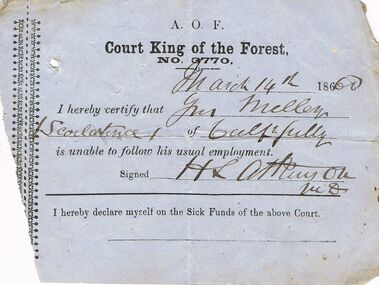 A. O. F.
Court King of the Forest,
NO. 3770.
March 14th 1860
I hereby certify that
of
is unable to follow his usual employment.
Signed H L Atkinson
MD
I hereby declare myself on the Sick Funds of the above Court.